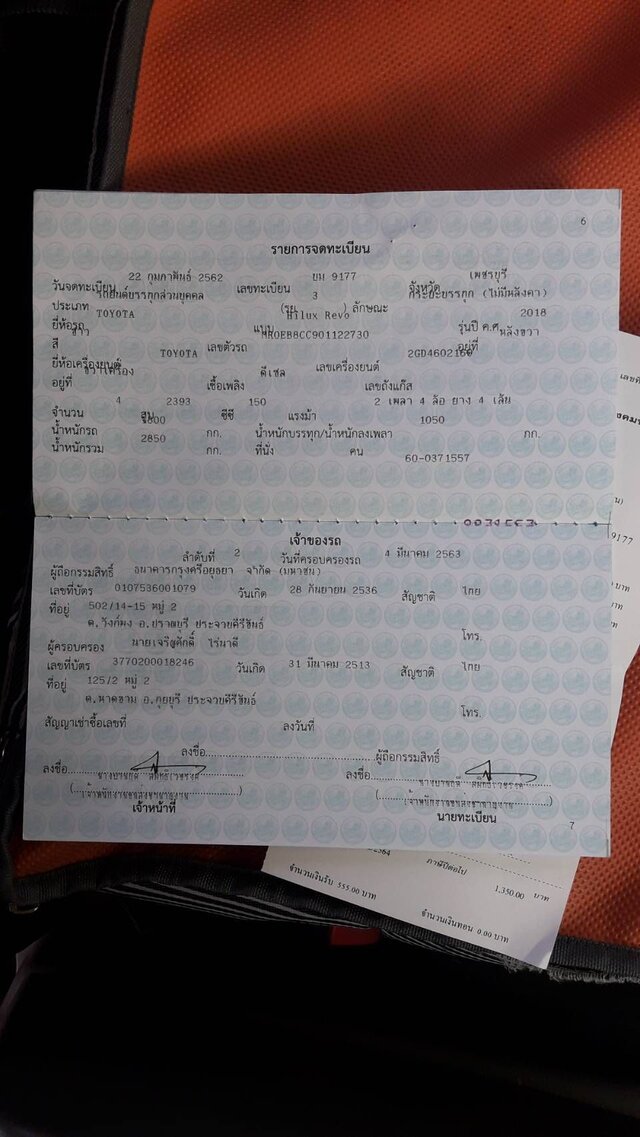 6
รายการจดทะเบียน
วันจดทะเบียน 22 กุมภาพันธ์ 2562 เลขทะเบียน ยม 9177 จังหวัด เพชรบุรี
ประเภท รถยนต์บรรทุกส่วนบุคคล (รย. 3 ) ลักษณะ กระบะบรรทุก (ไม่มีหลังคา)
ยี่ห้อรถ TOYOTA แบบ Hilux Revo รุ่นปี ค.ศ. 2018
สี ขาว เลขตัวรถ MR0EB8CC901122730 อยู่ที่ หลังขวา
ยี่ห้อเครื่องยนต์ TOYOTA เลขเครื่องยนต์ 2GD4602166
อยู่ที่ ขวาเครื่อง เชื้อเพลิง ดีเซล เลขถังแก๊ส
จำนวน 4 สูบ 2393 ซีซี 150 แรงม้า 2 เพลา 4 ล้อ ยาง 4 เส้น
น้ำหนักรถ 1800 กก. น้ำหนักบรรทุก/น้ำหนักลงเพลา 1050 กก.
น้ำหนักรวม 2850 กก. ที่นั่ง คน
60-0371557
เจ้าของรถ
ลำดับที่ 2 วันที่ครอบครองรถ 4 มีนาคม 2563
ผู้ถือกรรมสิทธิ์ ธนาคารกรุงศรีอยุธยา จำกัด (มหาชน)
เลขที่บัตร 0107536001079 วันเกิด 28 กันยายน 2536 สัญชาติ ไทย
ที่อยู่ 502/14-15 หมู่ 2
ต.วังก์พง อ.ปราณบุรี ประจวบคีรีขันธ์ โทร.
ผู้ครอบครอง นายเจริญศักดิ์ ไร่นาดี
เลขที่บัตร 3770200018246 วันเกิด 31 มีนาคม 2513 สัญชาติ ไทย
ที่อยู่ 125/2 หมู่ 2
ต.หาดขาม อ.กุยบุรี ประจวบคีรีขันธ์ โทร.
สัญญาเช่าซื้อเลขที่ ลงวันที่
ลงชื่อ ผู้ถือกรรมสิทธิ์
ลงชื่อ ลงชื่อ
เจ้าหน้าที่ นายทะเบียน
7
9177
ภาษีปีต่อไป 1,350.00 บาท
จำนวนเงินรับ 555.00 บาท จำนวนเงินทอน 0.00 บาท